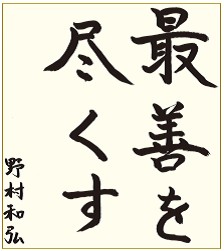 最善を
尽くす
野村和弘